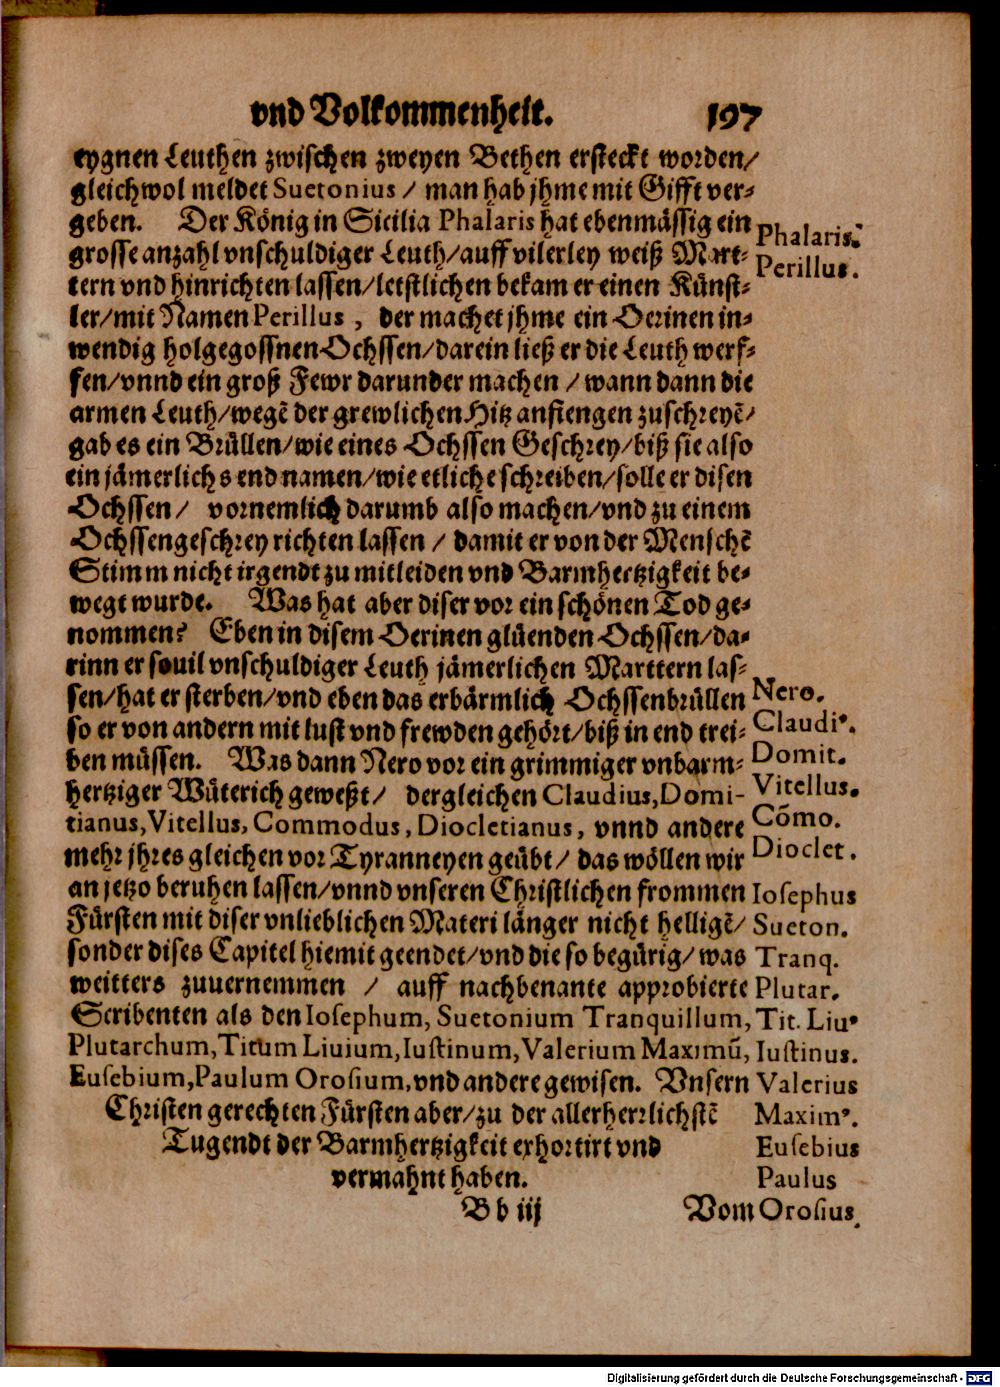 vnd Volkommenheit. 197
eygnen Leuthen zwischen zweyen Bethen ersteckt worden/
gleichwol meldet Suetonius / man hab jhme mit Gifft ver-
geben. Der König in Sicilia Phalaris hat ebenmässig ein
grosse anzahl vnschuldiger Leuth/auff vilerley weiß Mart-
tern vnd hinrichten lassen/letstlichen bekam er einen Künst-
ler/mit Namen Perillus, der machet jhme ein Oerinen in-
wendig holgegossnen Ochssen/darein ließ er die Leuth werf-
fen/vnnd ein groß Fewr darunder machen / wann dann die
armen Leuth/wegē der grewlichen Hitz anfiengen zuschreyē/
gab es ein Brüllen/wie eines Ochssen Geschrey/biß sie also
ein jämerlichs end namen/wie etliche schreiben/solle er disen
Ochssen / vornemlich darumb also machen/vnd zu einem
Ochssengeschrey richten lassen / damit er von der Menschē
Stimm nicht irgendt zu mitleiden vnd Barmhertzigkeit be-
wegt wurde. Was hat aber diser vor ein schönen Tod ge-
nommen? Eben in disem Oerinen glüenden Ochssen/da-
rinn er souil vnschuldiger Leuth jämerlichen Marttern las-
sen/hat er sterben/vnd eben das erbärmlich Ochssenbrüllen
so er von andern mit lust vnd frewden gehört/biß in end trei-
ben müssen. Was dann Nero vor ein grimmiger vnbarm-
hertziger Wüterich geweßt / dergleichen Claudius, Domi-
tianus, Vitellus, Commodus, Diocletianus, vnnd andere
mehr jhres gleichen vor Tyranneyen geübt / das wöllen wir
an jetzo beruhen lassen/vnnd vnseren Christlichen frommen
Fürsten mit diser vnlieblichen Materi länger nicht helligē/
sonder dises Capitel hiemit geendet/vnd die so begürig/was
weitters zuuernemmen / auff nachbenante approbierte
Scribenten als den Iosephum, Suetonium Tranquillum,
Plutarchum, Titum Liuium, Iustinum, Valerium Maximū,
Eusebium, Paulum Orosium, vnd andere gewisen. Vnsern
Christen gerechten Fürsten aber/zu der allerherrlichstē
Tugendt der Barmhertzigkeit exhortirt vnd
vermahnt haben.
B b iij Vom
Phalaris.
Perillus.
Nero.
Claudi⁹.
Domit.
Vitellus.
Cōmo.
Dioclet.
Iosephus
Sueton.
Tranq.
Plutar.
Tit. Liu⁹
Iustinus.
Valerius
Maxim⁹.
Eusebius
Paulus
Orosius.
Digitalisierung gefördert durch die Deutsche Forschungsgemeinschaft - DFG